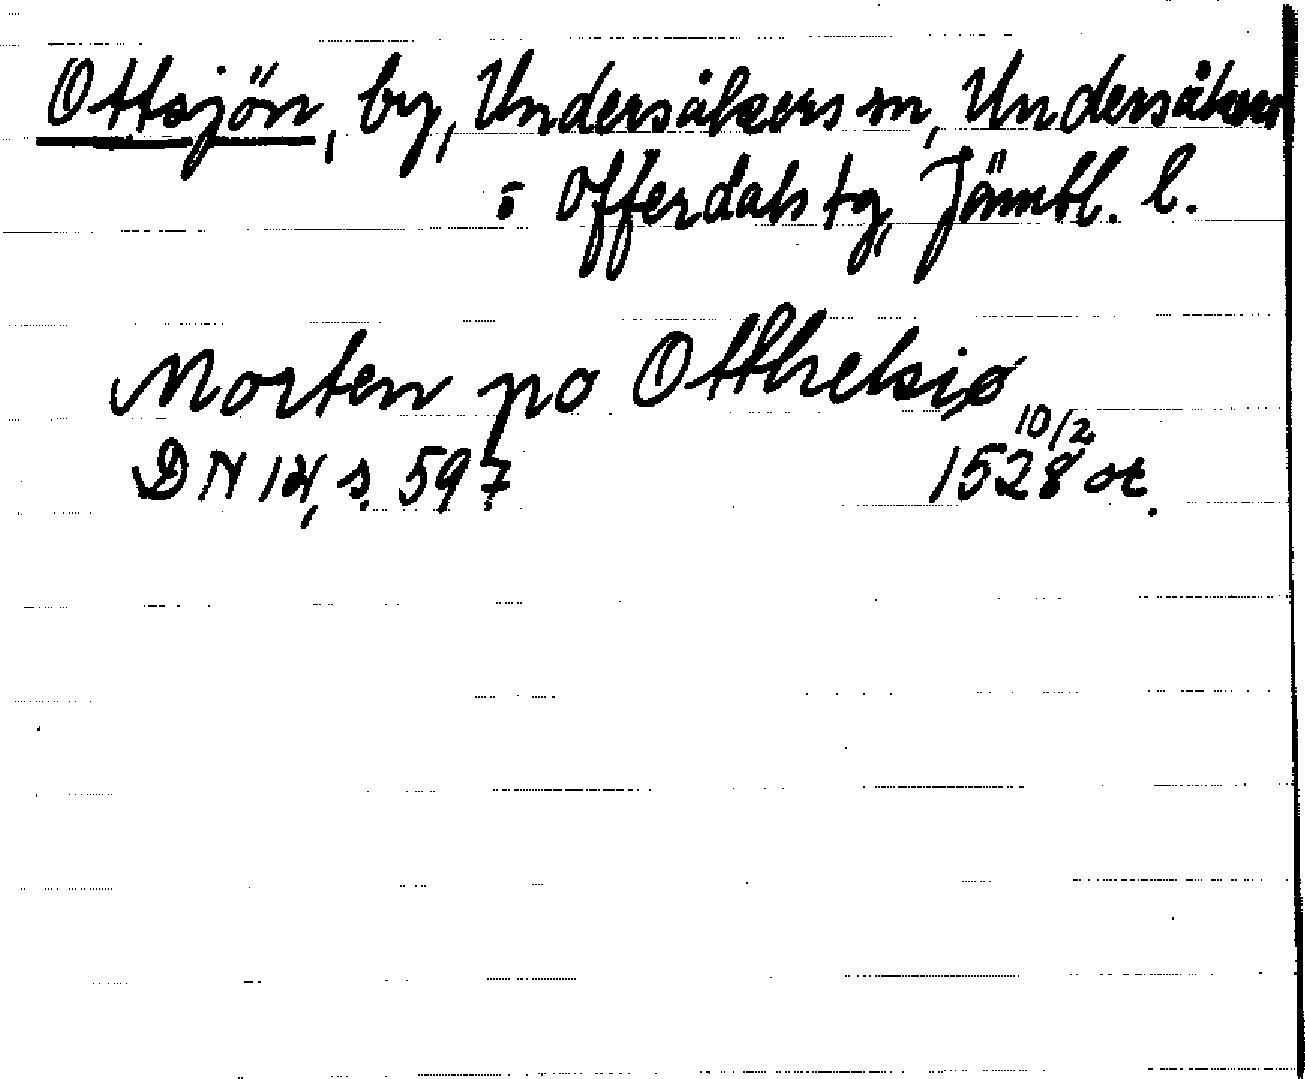 Ottsjön, by, Undersåkers sn, Undersåkers
o Offerdals tg, Jämtl. l.
Morten po Otthelsiø
DN 14, s. 597 10/2 1528 or.